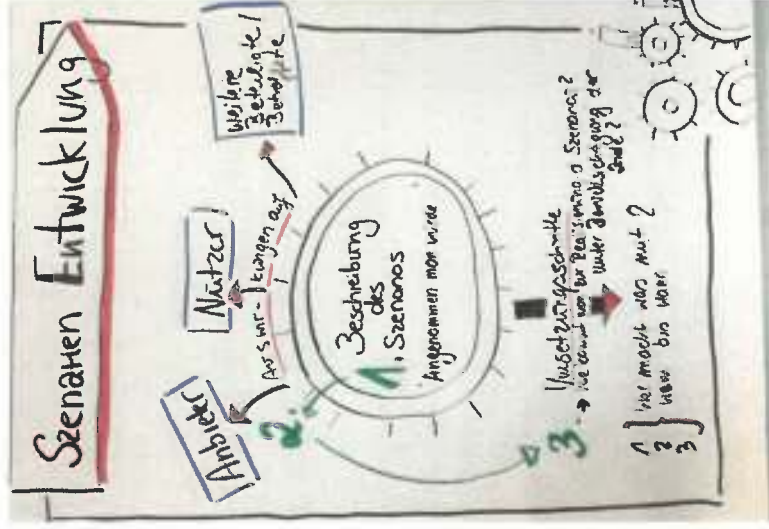 Szenarien Entwicklung
Anbieter
Nutzer
weitere
Beteiligte /
Betroffene
Auswirkungen auf
2.
1.
Beschreibung
des
Szenarios
Angenommen man würde
3.
Umsetzungsschritte
→ Wie kommt man zur Realisierung d. Szenarios?
unter Berücksichtigung der
1
2
3
Wer macht was mit ?
wann bis wann